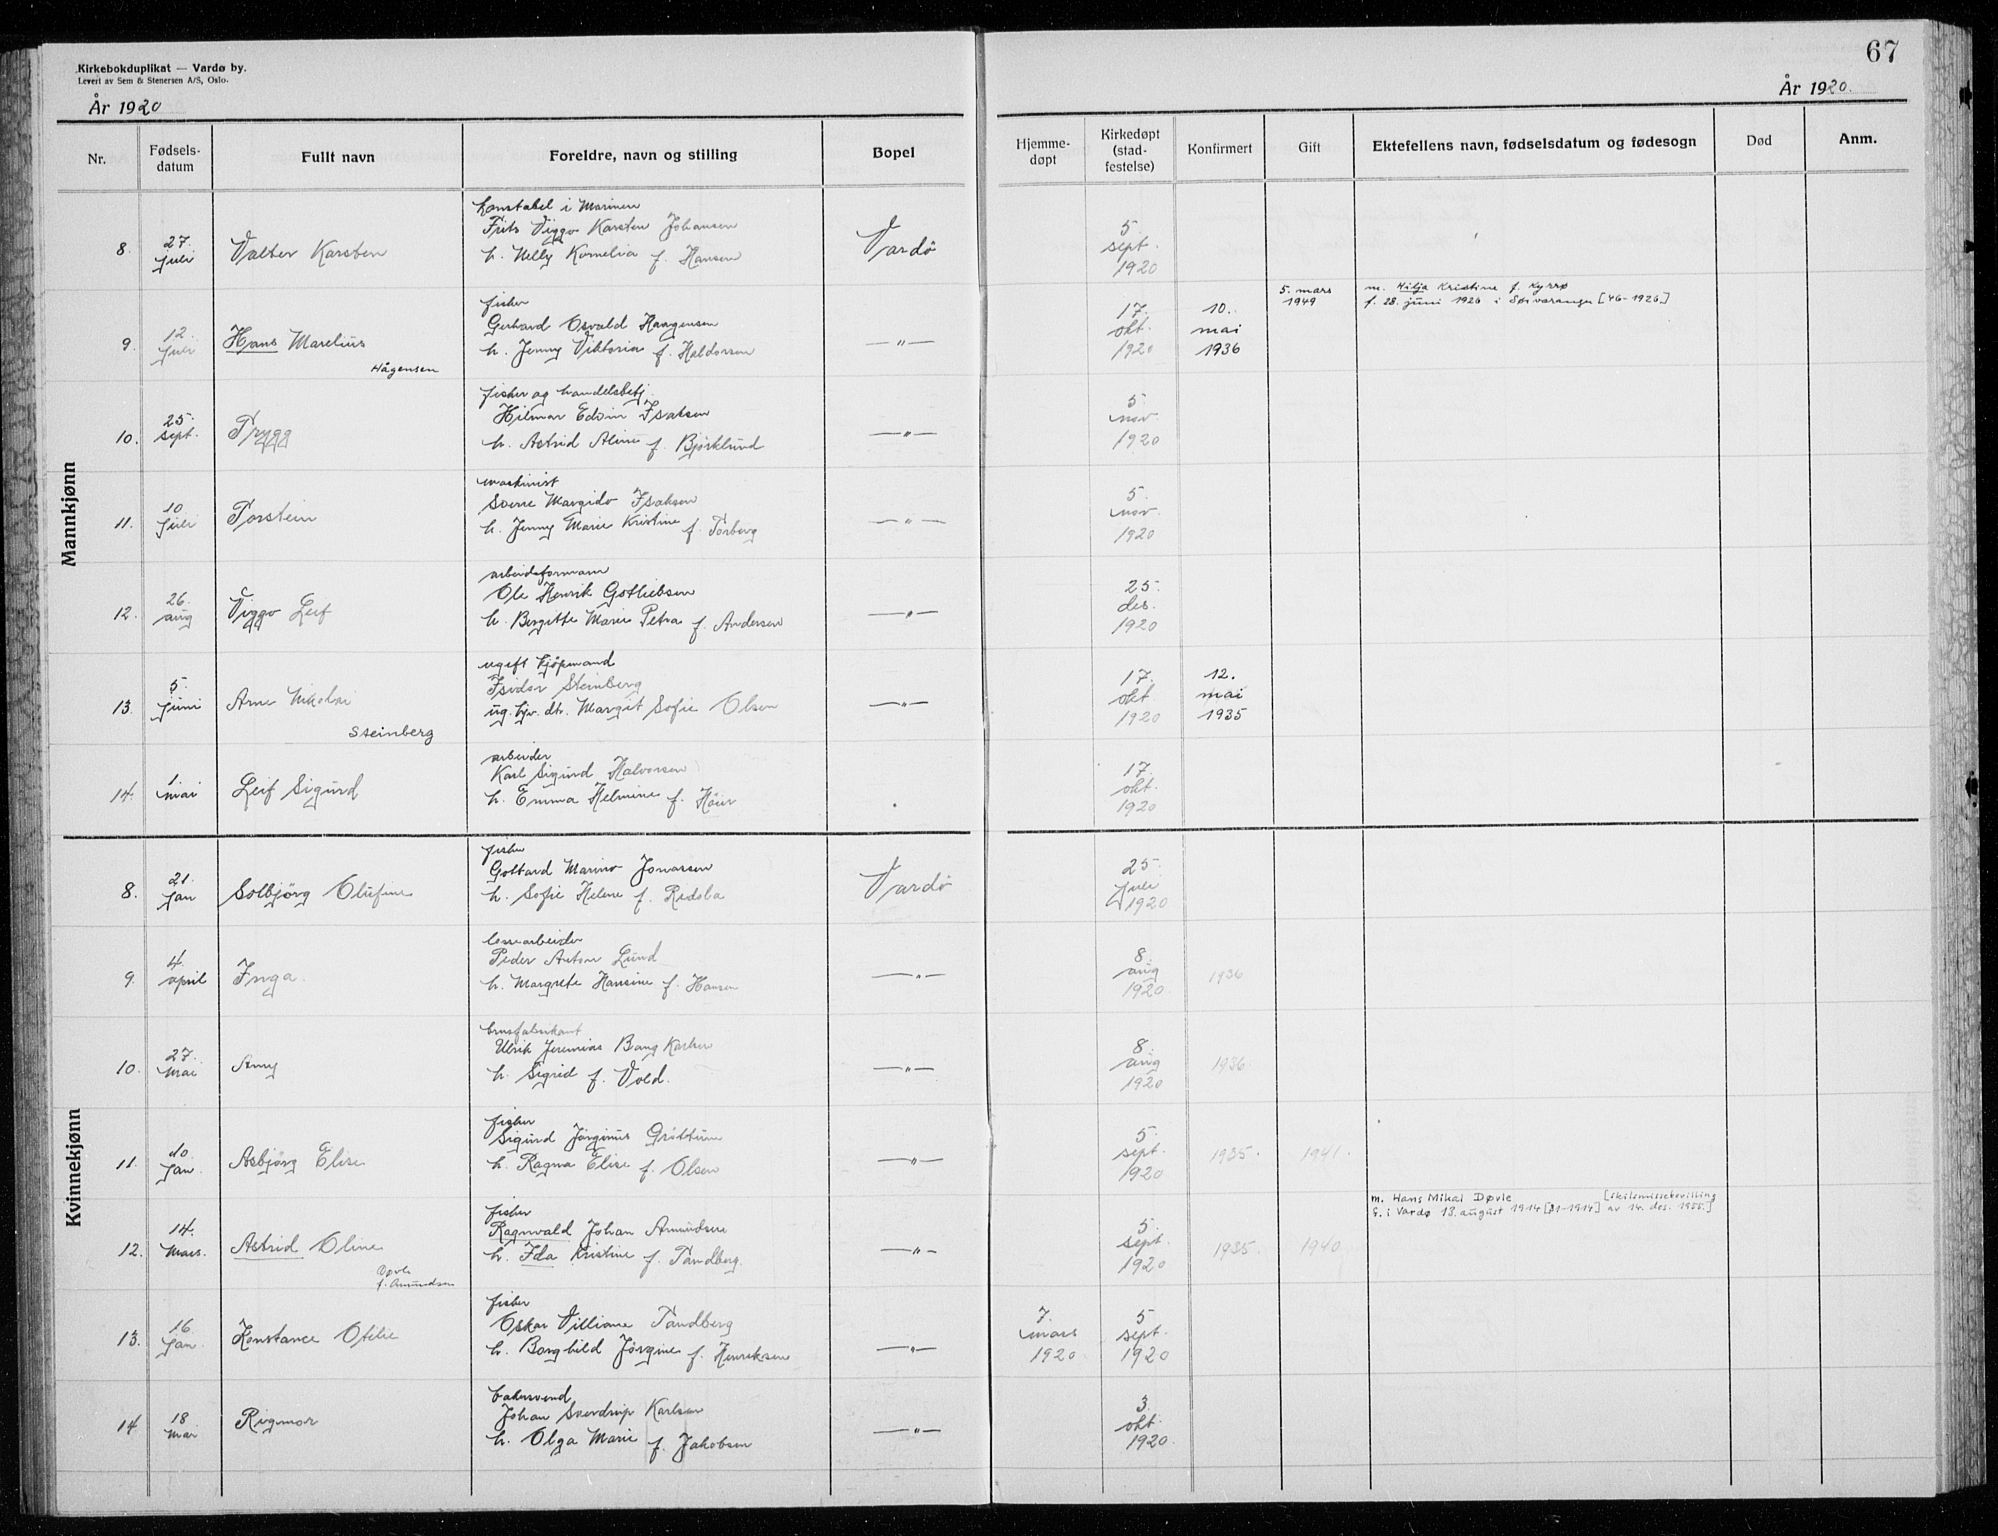 Kirkebokduplikat — Vardø by.
Levert av Sem & Stenersen A/S, Oslo.
År 1920
67
År 1920.
Nr.
Fødsels-
datum
Fullt navn
Foreldre, navn og stilling
Bopel
Hjemme-
døpt
Kirkedøpt
(stad-
festelse)
Konfirmert
Gift
Ektefellens navn, fødselsdatum og fødesogn
Død
Anm.
Mannkjønn
konstabel i Marinen
8. 27. juli Valter Karsten
Frits Viggo Karsten Johansen
h. Nelly Kornelia f. Hansen
Vardö
5. sept. 1920
fisker
9. 12. juli Hans Marelius
Hågensen
Gerhard Osvald Haagensen
h. Jenny Viktoria f. Haldorsen
—„—
17. okt. 1920
10. mai 1936
5. mars 1949
m. Hilja Kristine f. Kyrrø
f. 28. juni 1926 i Sørvaranger [46-1926]
fisker og handelsbetj.
10. 25. sept. Trygg
Hilmar Edvin Isaksen
h. Astrid Aline f. Bjørklund
—„—
5. nov 1920
maskinist
11. 10 juli Torstein
Sverre Margido Isaksen
h. Jenny Marie Kristine f. Torberg
—„—
5. nov. 1920
arbeidsformann
12. 26. aug Viggo Leif
Ole Henrik Gotliebsen
h. Bergitte Marie Petra f. Andersen
—„—
25. des. 1920
ugift kjöpmand
13. 5. juni Arne Nikolai
Steinberg
Isidor Steinberg
ug. hjv. dtr. Margit Sofie Olsen
—„—
17. okt 1920
12. mai 1935
arbeider
14. 1. mai Leif Sigurd
Karl Sigurd Halvorsen
h. Emma Helmine f. Höier
17. okt. 1920
Kvinnekjønn
fisker
8. 21. jan Solbjörg Olufine
Gottard Marino Jonassen
h. Sofie Helene f. Redola
Vardö
25. Juli 1920
lossearbeider
9. 4. april Inga.
Peder Anton Lund
h. Margrete Hansine f. Hansen
—„—
8. aug 1920.
1936
brusfabrikant
10. 27. Mai Amy
Ulrik Jeremias Bang Karlsen
h. Sigrid f. Vold.
—„—
8. aug 1920
1936.
fisker
11. 20. Jan. Asbjörg Elise
Sigurd Jörginus Gröttum
h. Ragna Elise f. Olsen
—„—
5. sept. 1920
1935.
1941.
fisker
12. 14. Mars. Astrid Oline
Døvle
f. Amundsen
Ragnvald Johan Amundsen
h. Ida Kristine f. Tandberg.
—„—
5. sept. 1920
1935.
1940
m. Hans Mikal Døvle [skilsmissebevilling
f. i Vardø 13. august 1914 [31-1914] av 14. des. 1955.]
fisker
13. 16 Jan. Konstance Otelie
Oskar Villiam Tandberg
h. Borghild Jörgine f. Henriksen
—„—
7. mars 1920.
5 sept. 1920
bakersvend
14 18 Mar Rigmor
Johan Sverdrup Karlsen
h. Olga Marie f. Jakobsen
—„—
3. okt. 1920.